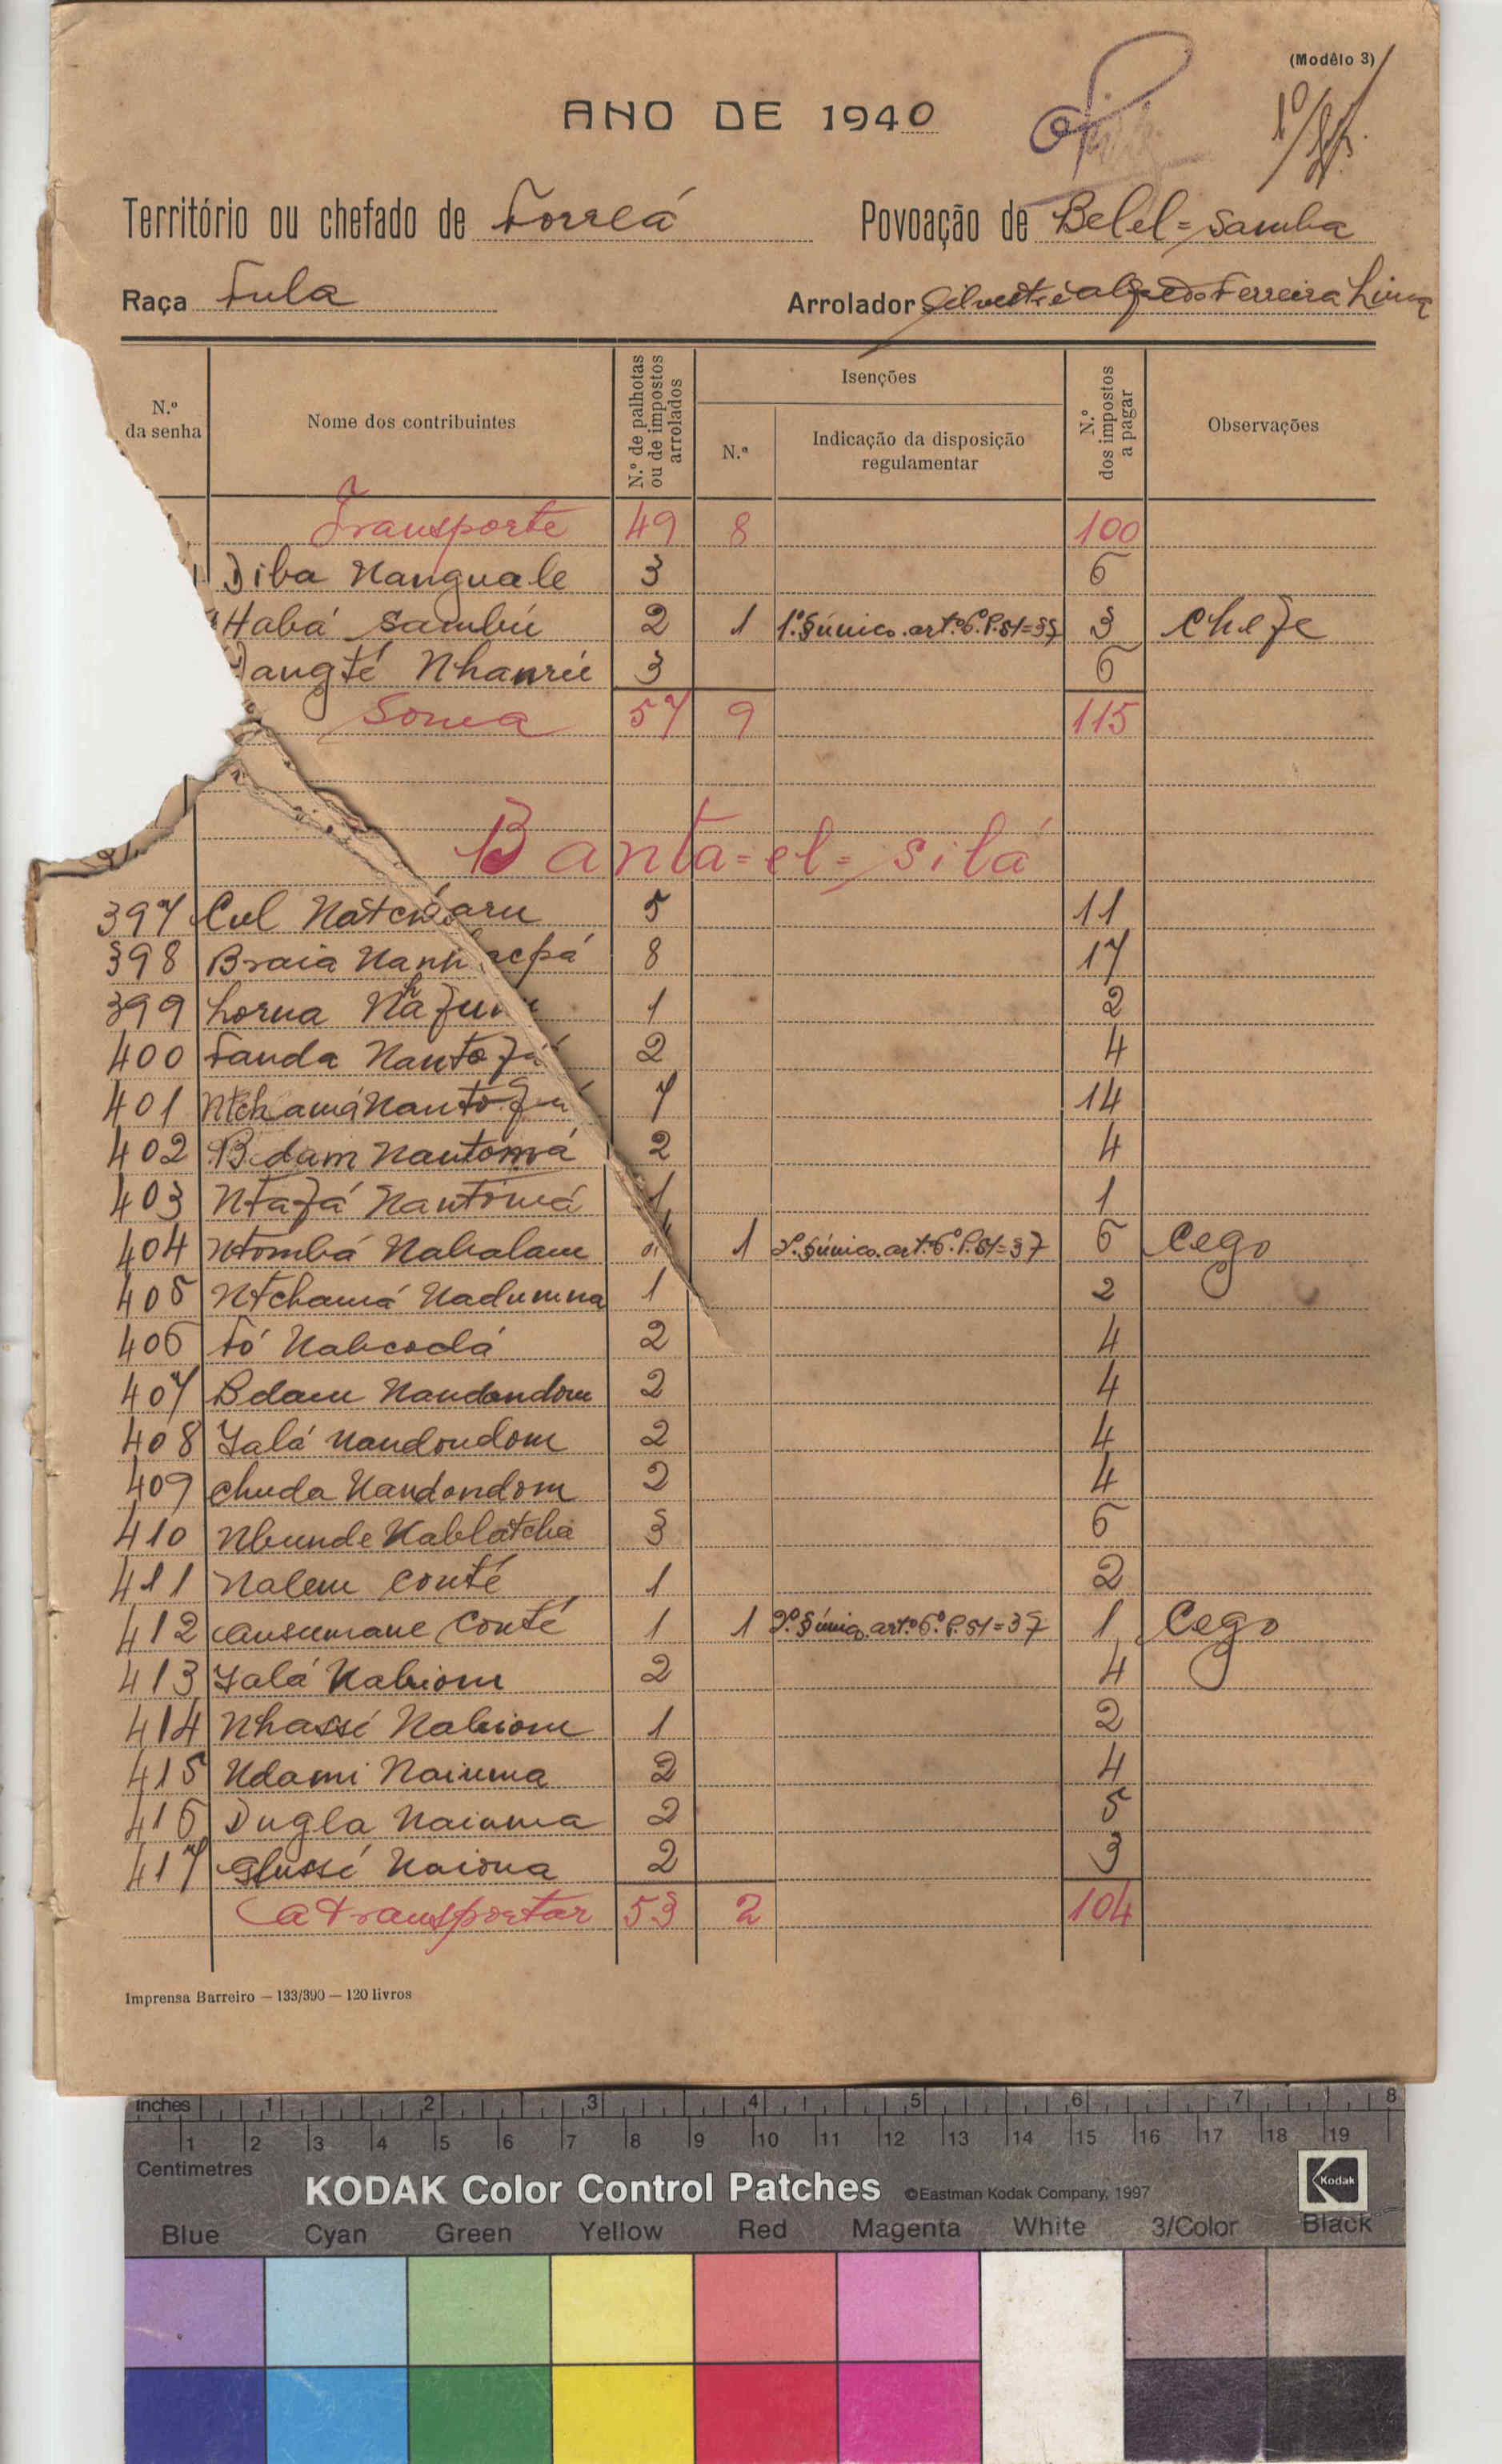 (Modêlo 3)
ANO DE 1940
Território ou chefado de Forreá Povoação de Belel=Samba
Raça Fula Arrolador Silvestre Alfredo Ferreira Lima
N.º da senha Nome dos contribuintes N.º de palhotas ou de impostos arrolados Isenções N.º Indicação da disposição regulamentar N.º dos impostos a pagar Observações
Transporte 49 8 100
Diba Nanguale 3 6
Habá Sambú 2 1 1º.§único.artº.6º.P.51=37 3 Chefe
angté Nhanrú 3 6
Soma 57 9 115
Banta=el=silá
397 Cul 5 11
398 Braia 8 17
399 Lorna 1 2
400 Fanda 2 4
401 Ntchamá 7 14
402 Bdam Nantomá 2 4
403 Ntafá Nantomá 1 1
404 Ntombá Nabalam 1 2º.§único.artº.6º.P.51=37 6 Cego
405 Ntchamá Nadumna 1 2
406 Fó Nabcodá 2 4
407 Bdam Nandondom 2 4
408 Ialá Nandondom 2 4
409 Chuda Nandondom 2 4
410 Nbunde Nablatcha 3 6
411 Nalem Conté 1 2
412 Ansumane Conté 1 1 2º.§único.artº.6º.P.51=37 1 Cego
413 Ialá Nabiom 2 4
414 Nhassé Nabiom 1 2
415 Ndami Naiuma 2 4
416 Dugla Naiuma 2 5
417 Naiona 2 3
A transportar 53 2 104
Imprensa Barreiro — 133/390 — 120 livros
Inches 1 2 3 4 5 6 7 8
1 2 3 4 5 6 7 8 9 10 11 12 13 14 15 16 17 18 19
Centimetres
KODAK Color Control Patches ©Eastman Kodak Company, 1997 Kodak
Blue Cyan Green Yellow Red Magenta White 3/Color Black